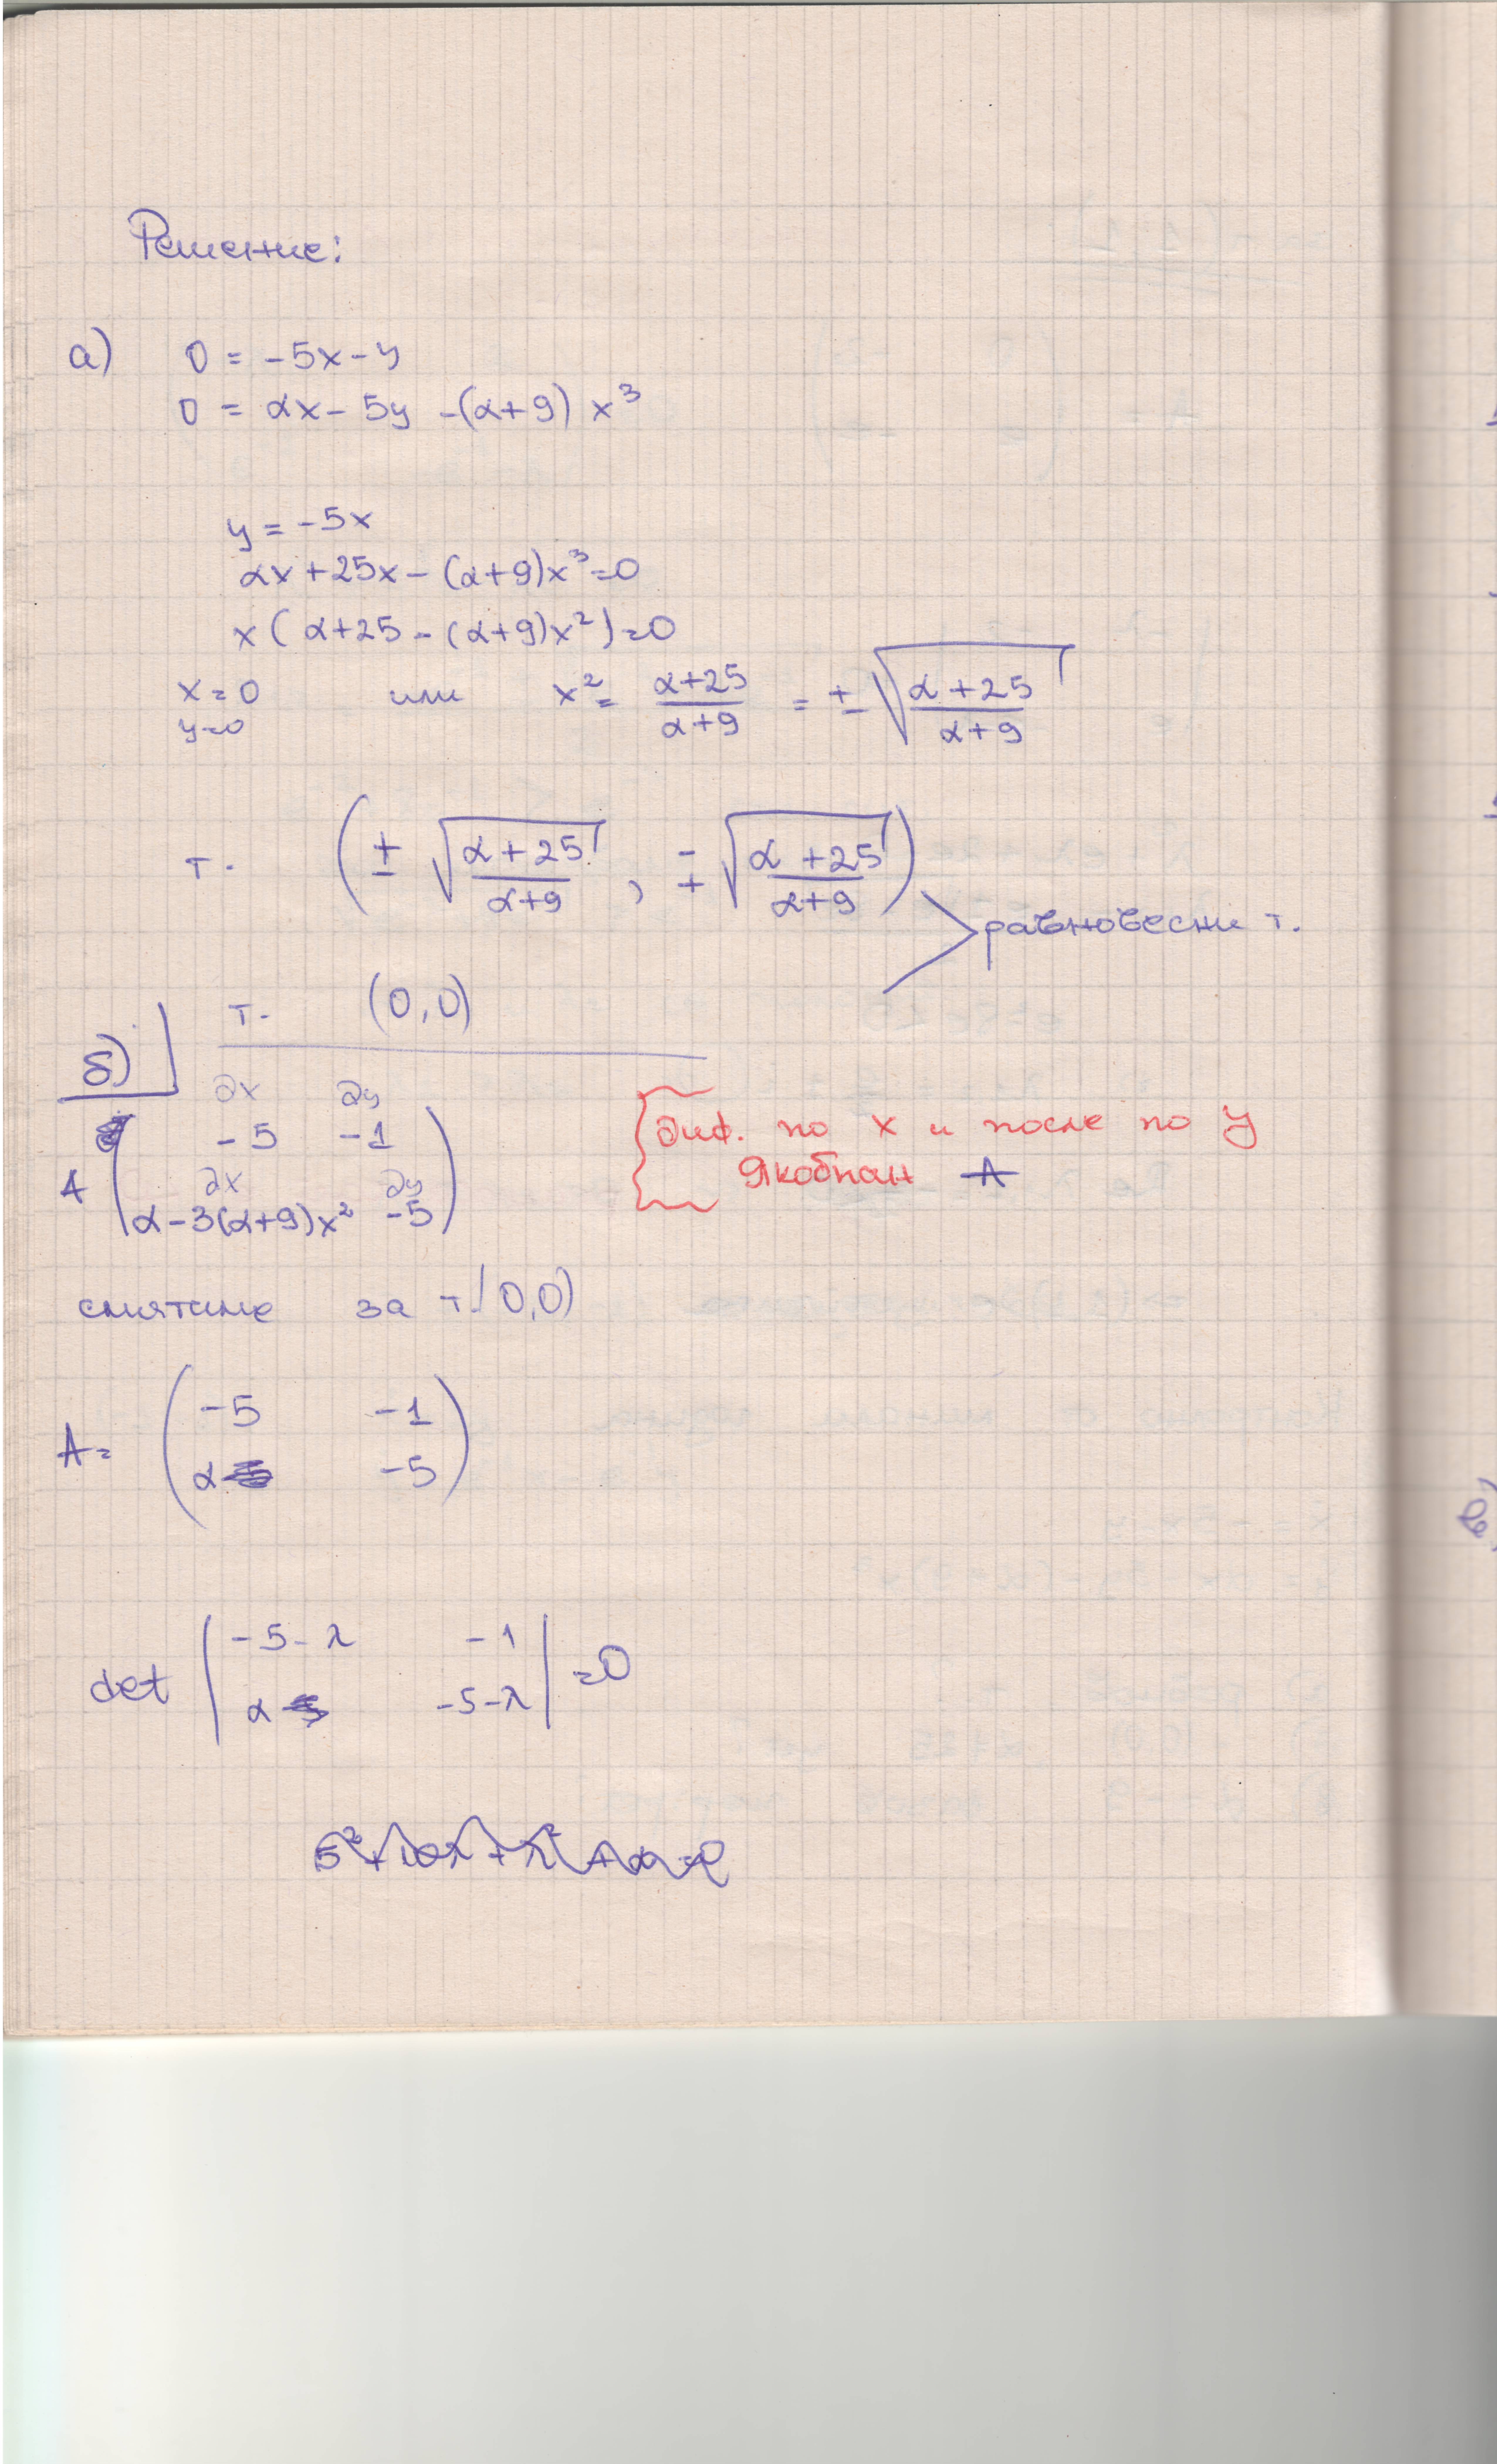 Решение:
а) 0 = -5x - y
0 = αx - 5y - (α+9) x³
y = -5x
αx + 25x - (α+9)x³ = 0
x ( α+25 - (α+9)x² ) = 0
x = 0 или x² = (α+25)/(α+9) = ± √((α+25)/(α+9))
y = 0
т. ( ± √((α+25)/(α+9)) , ∓ √((α+25)/(α+9)) )
равновесни т.
т. (0,0)
б)
∂x ∂y
-5 -1
∂x ∂y
A ( α-3(α+9)x² -5 )
диф. по x и после по y
Якобиан A
смятаме за т. (0,0)
A = ( -5 -1
α -5 )
det | -5-λ -1 | = 0
| α -5-λ |
5² + 10λ + λ² + α = 0